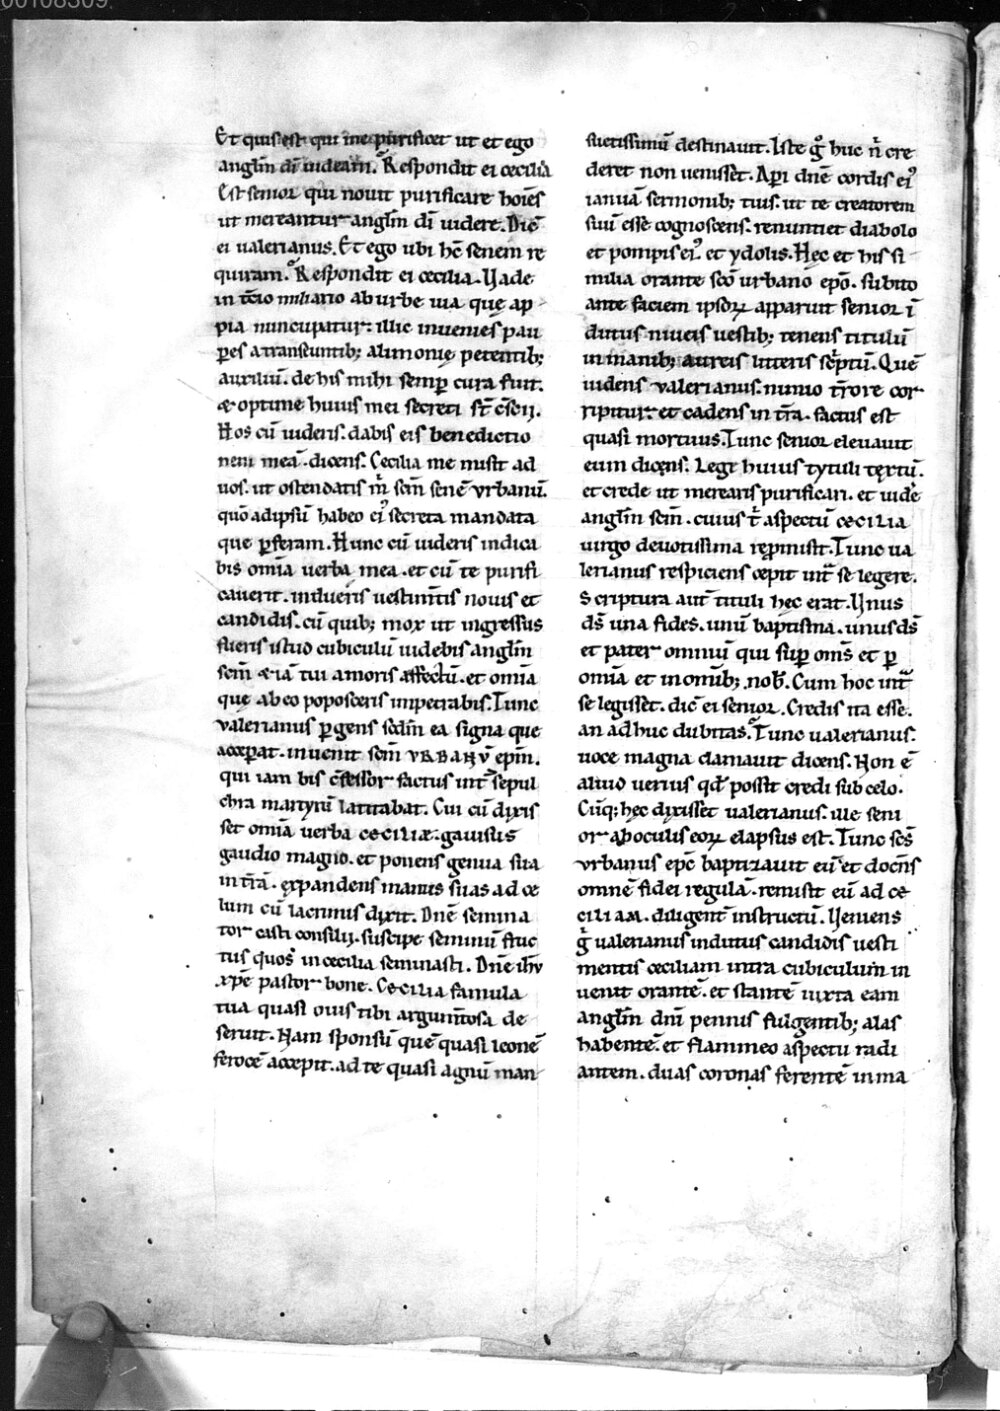 00108309
Et quis est qui me purificet ut et ego
angĺm dī uideam. Respondit ei cecilia
Est senior qui nouit purificare hoīes
ut mereantur angĺm dī uidere. Dic̄
ei ualerianus. Et ego ubi hc̄ senem re
quiram. Respondit ei cecilia. Vade
in tc̄io miliario ab urbe uia quę ap
pia nuncupatur: illic inuenies pau
ꝑes a transeuntib; alimonię petentib;
auxiliū. de his mihi semꝑ cura fuit.
& optime huius mei secreti st̄ c̄scij.
Hos cū uideris. dabis eis benedictio
nem meā. dicens. Cecilia me misit ad
uos. ut ostendatis m̄ scm̄ senē urbanū.
quō ad ipsū habeo eiꝰ secreta mandata
que ꝑferam. Hunc cū uideris indica
bis omīa uerba mea. et cū te purifi
cauerit. indueris uestimtīs nouis et
candidis. cū quib; mox ut ingressus
fueris istud cubiculū uidebis angĺm
scm̄ & iā tui amoris affectū. et omīa
que ab eo poposceris impetrabis. Tunc
ualerianus ꝑgens scdm̄ ea signa que
acceꝑat. inuenit scm̄ VRBANV̄ epm̄.
qui iam bis c̄fessor factus int̄ sepul
chra martyrū latitabat. Cui cū dixis
set omīa uerba CECILIÆ. gauisus
gaudio magno. et ponens genua sua
in tr̄a. expandens manus suas ad ce
lum cū lacrimis dixit. Dnē semina
tor casti consilij. suscipe seminū fruc
tus quos in cecilia seminasti. Dnē ihū
xpē pastor bone. CECILIA famula
tua quasi ouis tibi argumtōsa de
seruit. Nam sponsū quē quasi leonē
ferocē accepit. ad te quasi agnū man
suetissimū destinauit. Iste gͦ huc n̄ cre
deret non uenisset. Aꝑi dnē cordis eiꝰ
ianuā sermonib; tuis. ut te creatorem
suū esse cognoscens. renuntiet diabolo
et pompis eiꝰ. et ydolis. Hęc et his si
milia orante scō urbano epō. subito
ante faciem ipsoꝝ apparuit senior ī
dutus niueis uestib; tenens titulū
in manib; aureis litteris sc̄ptū. Quē
uidens ualerianus. nimio tr̄ore cor
ripitur. et cadens in tr̄a. factus est
quasi mortuus. Tunc senior eleuauit
eum dicens. Lege huius tytuli tęxtū.
et crede ut merearis purificari. et uidē
angĺm scm̄. cuius t̄ aspectū CECILIA
uirgo deuotissima repͦmisit. Tunc ua
lerianus respiciens cepit int̄ se legere.
Scriptura aut̄ tituli hęc erat. Vnus
ds̄ una fides. unū baptisma. unus ds̄
et pater omniū qui suꝑ oms̄ et ꝑ
omīa et in omīb; nob̄. Cum hoc int̄
se legisset. dic̄ ei senior. Credis ita esse.
an adhuc dubitas. Tunc ualerianus.
uoce magna clamauit dicens. Non ē
aliud uerius qd̄ possit credi sub celo.
Cūq; hęc dixisset ualerianus. ille seni
or ab oculis eoꝝ elapsus est. Tunc scs̄
urbanus epc̄ baptizauit eū et docn̄s
omnē fidei regulā. remisit eū ad CE
CILIAM. diligent̄ instructū. Veniens
gͦ ualerianus indutus candidis uesti
mentis ceciliam intra cubiculum in
uenit orantē. et stantē iuxta eam
angĺm dnī pennis fulgentib; alas
habentē. et flammeo aspectu radi
antem. duas coronas ferentē in ma